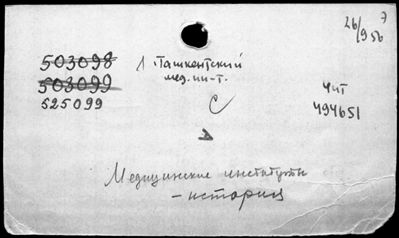 26/9 56
7
503098
503099
525099
1 Ташкентский
мед. ин-т.
С
Чит
494651
Медицинские институты
- история